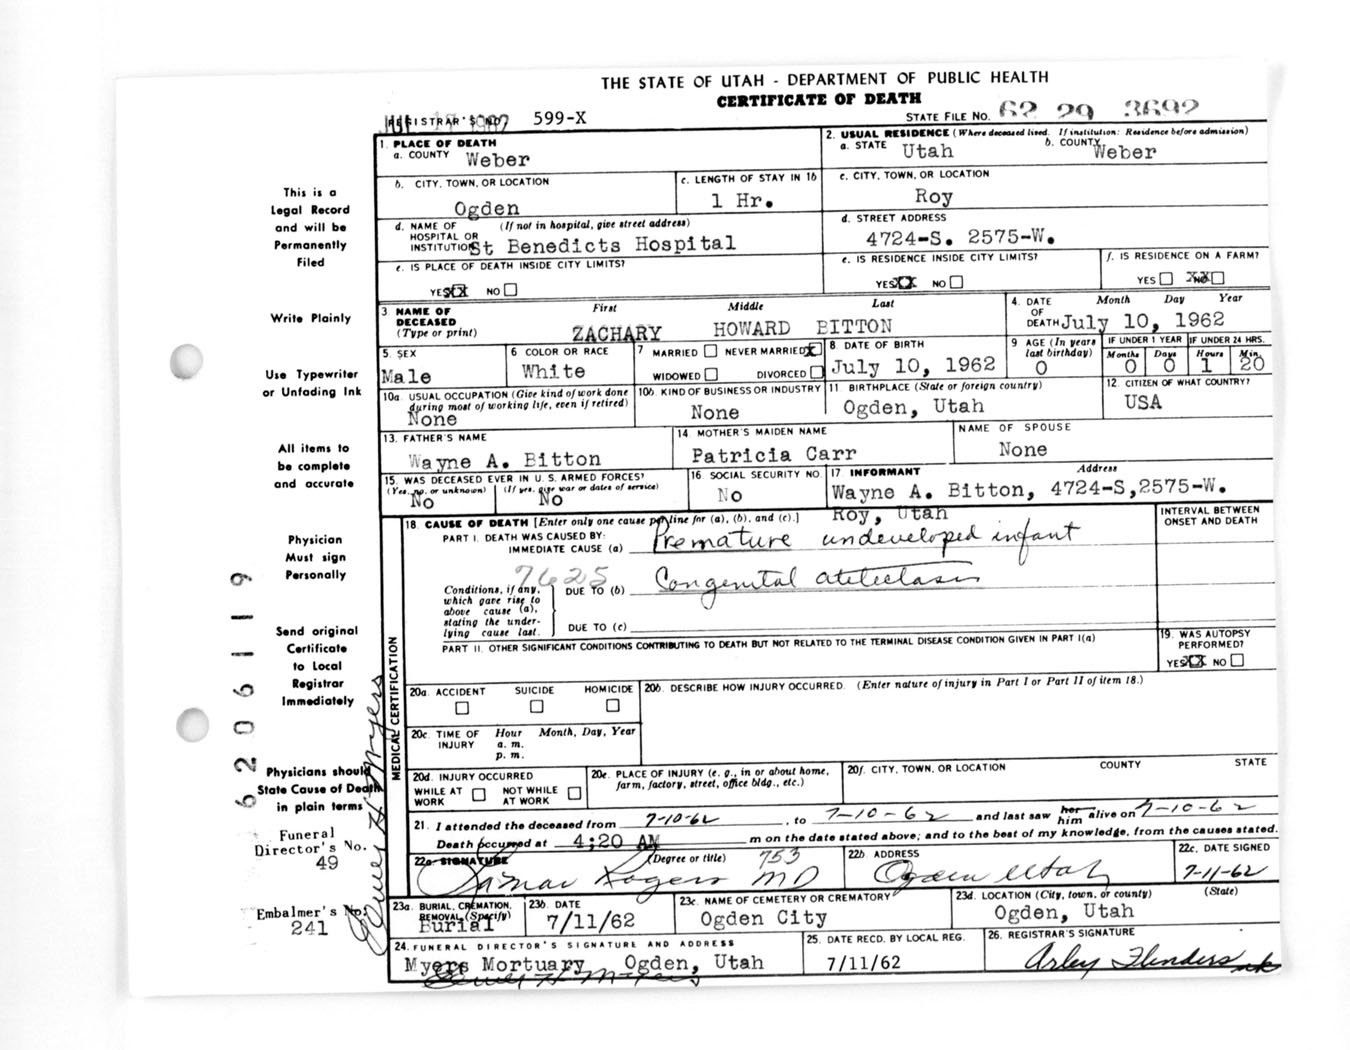 THE STATE OF UTAH - DEPARTMENT OF PUBLIC HEALTH
CERTIFICATE OF DEATH
REGISTRAR'S NO. 599-X STATE FILE NO. 62 29 3692
1. PLACE OF DEATH
a. COUNTY Weber
2. USUAL RESIDENCE (Where deceased lived. If institution: Residence before admission)
a. STATE Utah b. COUNTY Weber
b. CITY, TOWN, OR LOCATION Ogden
c. LENGTH OF STAY IN 1b 1 Hr.
c. CITY, TOWN, OR LOCATION Roy
d. NAME OF HOSPITAL OR INSTITUTION (If not in hospital, give street address) St Benedicts Hospital
d. STREET ADDRESS 4724-S. 2575-W.
e. IS PLACE OF DEATH INSIDE CITY LIMITS?
YES XX NO
e. IS RESIDENCE INSIDE CITY LIMITS?
YES XX NO
f. IS RESIDENCE ON A FARM?
YES NO XX
3 NAME OF DECEASED (Type or print) First Middle Last
ZACHARY HOWARD BITTON
4. DATE OF DEATH Month Day Year
July 10, 1962
5. SEX Male
6 COLOR OR RACE White
7 MARRIED NEVER MARRIED X
WIDOWED DIVORCED
8. DATE OF BIRTH July 10, 1962
9 AGE (In years last birthday) 0
IF UNDER 1 YEAR Months 0 Days 0
IF UNDER 24 HRS. Hours 1 Min. 20
10a. USUAL OCCUPATION (Give kind of work done during most of working life, even if retired) None
10b. KIND OF BUSINESS OR INDUSTRY None
11 BIRTHPLACE (State or foreign country) Ogden, Utah
12. CITIZEN OF WHAT COUNTRY? USA
13. FATHER'S NAME Wayne A. Bitton
14. MOTHER'S MAIDEN NAME Patricia Carr
NAME OF SPOUSE None
15. WAS DECEASED EVER IN U.S. ARMED FORCES?
(Yes, no, or unknown) No (If yes, give war or dates of service) No
16. SOCIAL SECURITY NO. No
17 INFORMANT Address
Wayne A. Bitton, 4724-S,2575-W.
Roy, Utah
18. CAUSE OF DEATH [Enter only one cause per line for (a), (b), and (c).]
INTERVAL BETWEEN ONSET AND DEATH
PART I. DEATH WAS CAUSED BY:
IMMEDIATE CAUSE (a) Premature undeveloped infant
7625
Conditions, if any, which gave rise to above cause (a), stating the underlying cause last.
DUE TO (b) Congenital atelectasis
DUE TO (c)
PART II. OTHER SIGNIFICANT CONDITIONS CONTRIBUTING TO DEATH BUT NOT RELATED TO THE TERMINAL DISEASE CONDITION GIVEN IN PART I(a)
19. WAS AUTOPSY PERFORMED?
YES XX NO
20a. ACCIDENT SUICIDE HOMICIDE
20b. DESCRIBE HOW INJURY OCCURRED. (Enter nature of injury in Part I or Part II of item 18.)
20c. TIME OF INJURY Hour Month, Day, Year
a. m.
p. m.
20d. INJURY OCCURRED
WHILE AT WORK NOT WHILE AT WORK
20e. PLACE OF INJURY (e. g., in or about home, farm, factory, street, office bldg., etc.)
20f. CITY, TOWN, OR LOCATION COUNTY STATE
21. I attended the deceased from 7-10-62, to 7-10-62 and last saw her him alive on 7-10-62
Death occurred at 4:20 AM m on the date stated above; and to the best of my knowledge, from the causes stated.
22a. SIGNATURE (Degree or title) 753
Lamar Rogers MD
22b. ADDRESS Ogden Utah
22c. DATE SIGNED 7-11-62
23a. BURIAL, CREMATION, REMOVAL (Specify) Burial
23b. DATE 7/11/62
23c. NAME OF CEMETERY OR CREMATORY Ogden City
23d. LOCATION (City, town, or county) (State) Ogden, Utah
24. FUNERAL DIRECTOR'S SIGNATURE AND ADDRESS
Myers Mortuary Ogden, Utah
25. DATE RECD. BY LOCAL REG. 7/11/62
26. REGISTRAR'S SIGNATURE
Arley Flinders
MEDICAL CERTIFICATION
This is a
Legal Record
and will be
Permanently
Filed
Write Plainly
Use Typewriter
or Unfading Ink
All items to
be complete
and accurate
Physician
Must sign
Personally
Send original
Certificate
to Local
Registrar
Immediately
Physicians should
State Cause of Death
in plain terms
Funeral
Director's No.
49
Embalmer's No.
241
62 061 19